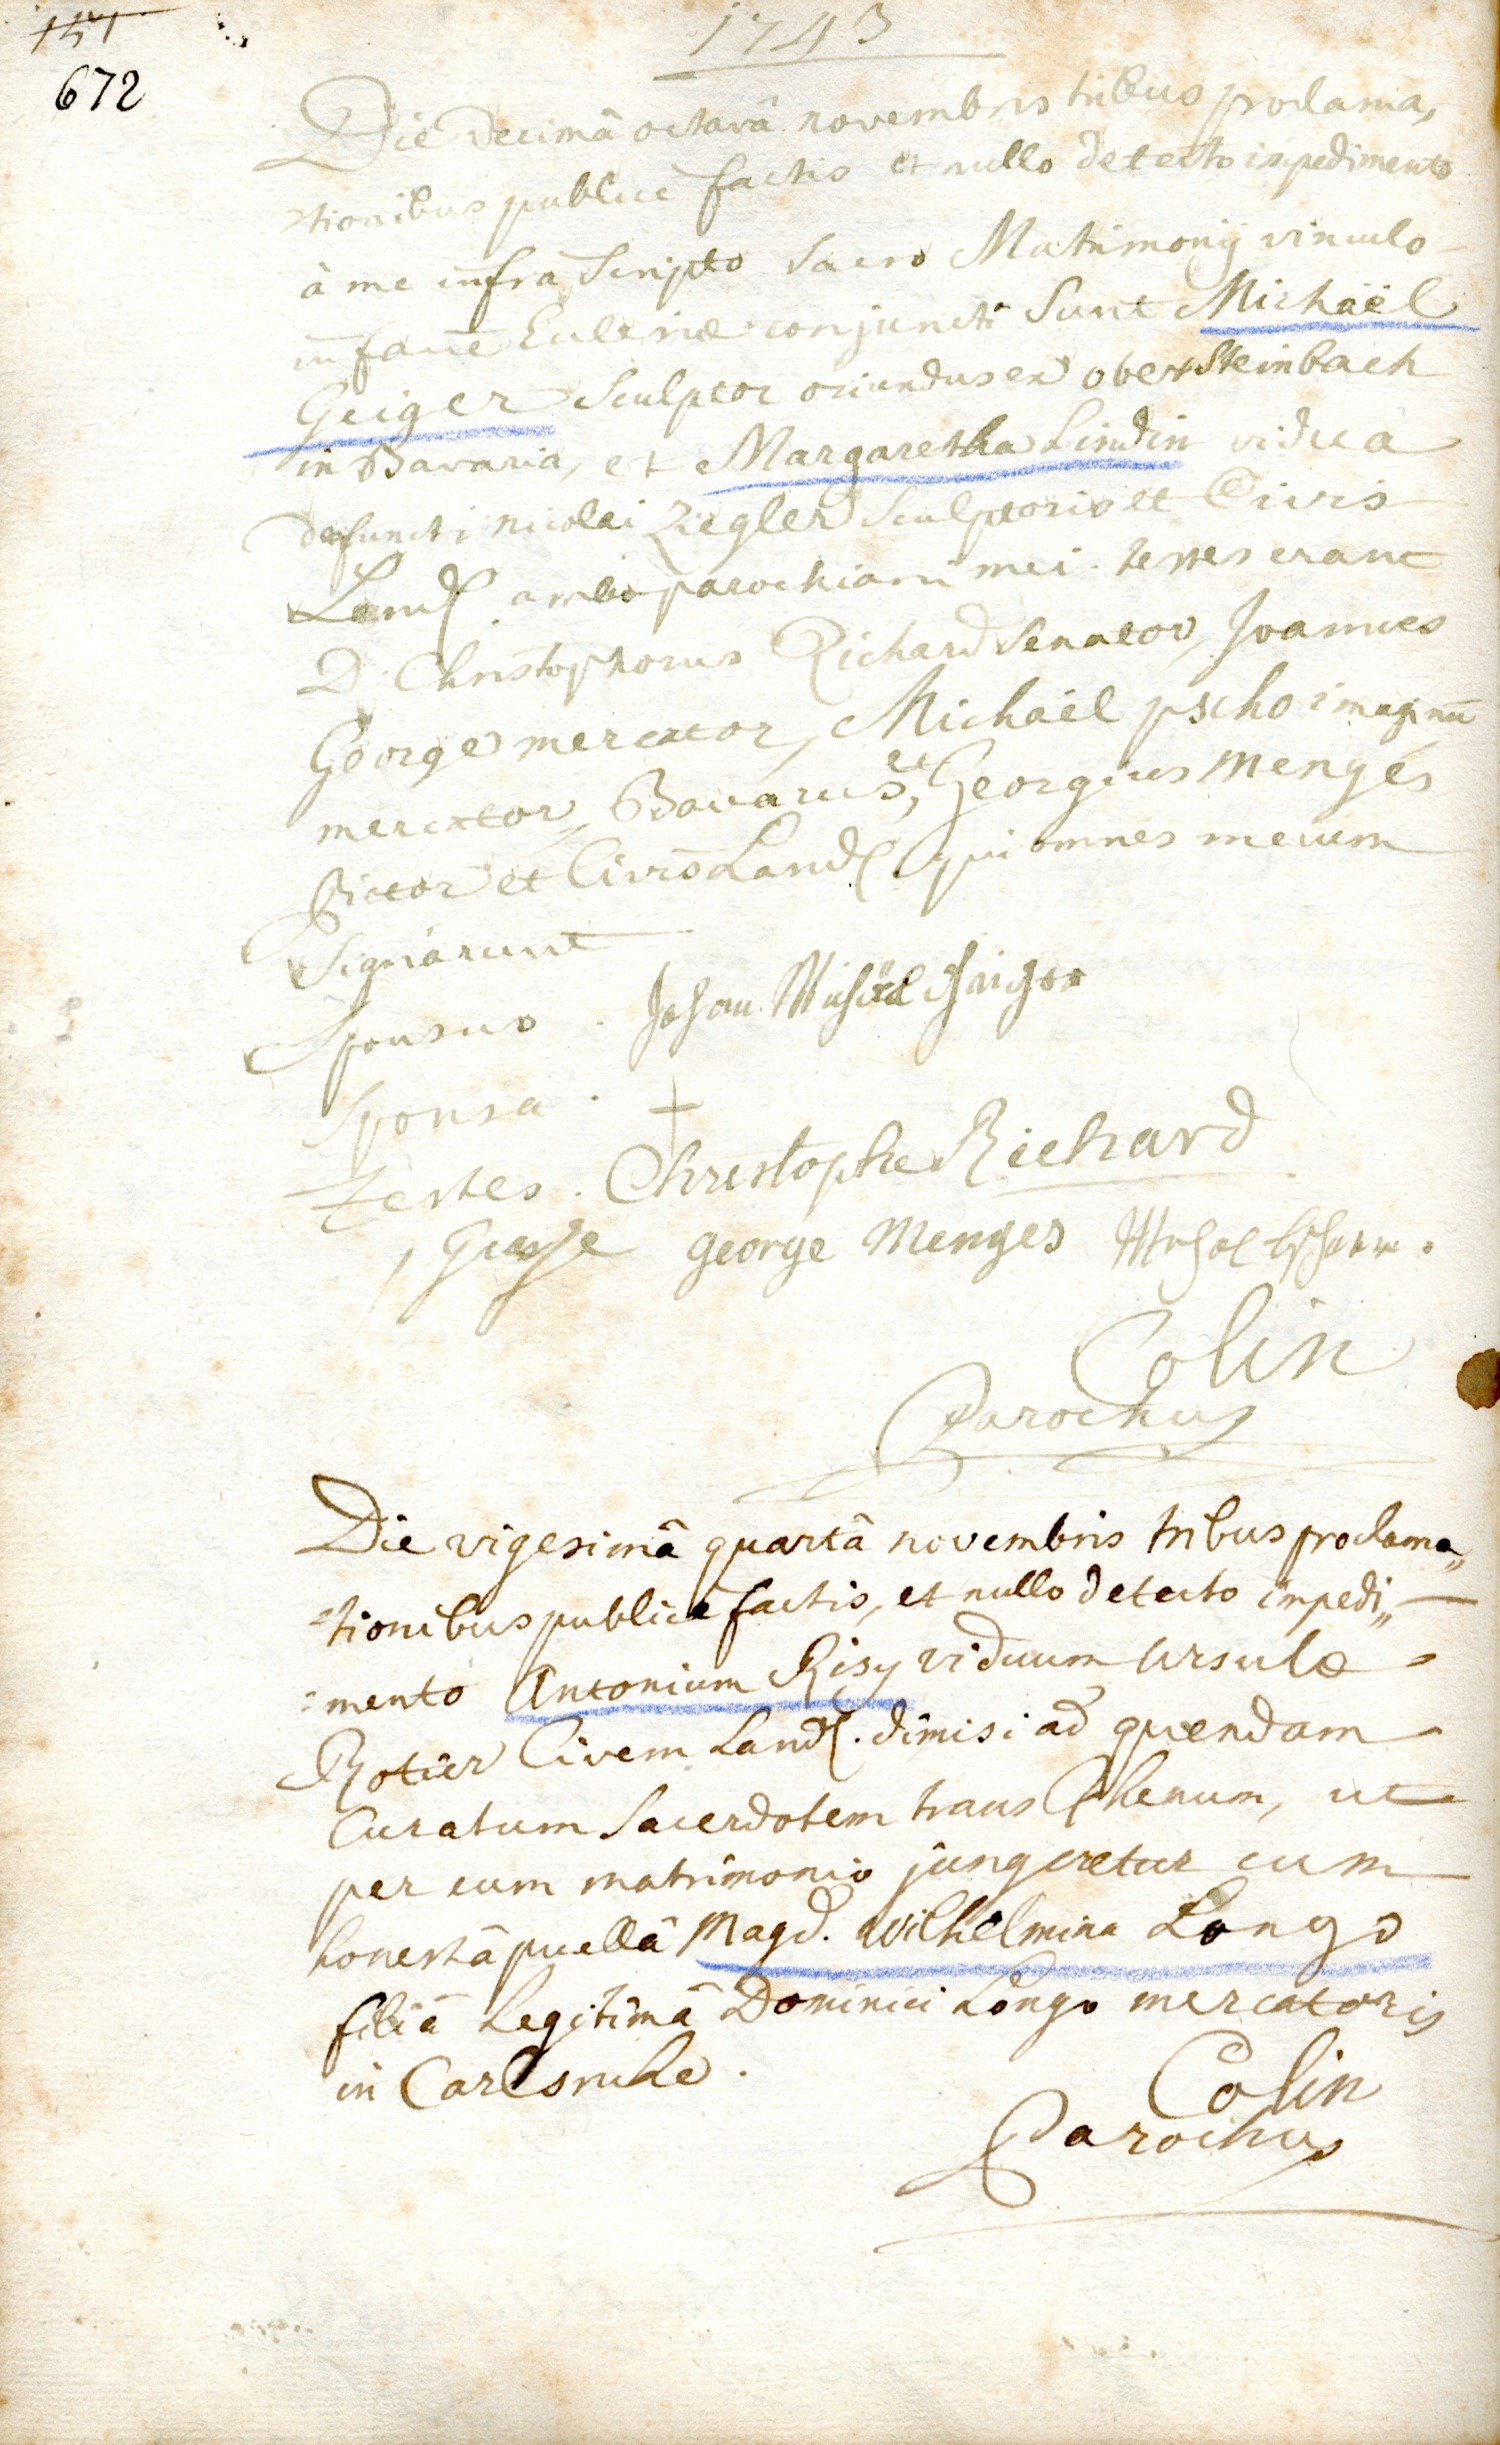 151
672
1743
Die decimâ octavâ novembris tribus proclama,,
=tionibus publicè factis et nullo detecto impedimento
à me infra scripto sacro Matrimonij vinculo
in facie Ecclesiæ conjuncti sunt Michaël
Geiger sculptor oriundus ex obersteinbach
in Bavaria, et Margaretha Lindin vidua
defuncti nicolai Ziegler sculptoris et Civis
Land. ambo parochiani mei. testes erant
D. Christophorus Richard senator, Joannes
George mercator, Michaël pscho imaginū
mercator, Bavarus, et Georgius Menges
Pictor et Civis Land. qui omnes mecum
signarunt
Sponsus . Johan Michäel Geiger
Sponsa . +
testes . Christophe Richard
george Menges Michael
Colin
Parochus
Die vigesimâ quartâ novembris tribus proclama,,
=tionibus publicè factis, et nullo detecto impedi,,
:mento Antonium Risy viduum Ursulæ
Rotier Civem Land. dimisi ad quendam
Curatum sacerdotem trans Rhenum, ut
per eum matrimonio jungeretur cum
honestâ puellâ Magd. Wilhelmina Longo
filiâ legitimâ Dominici Longo mercatoris
in Carlsruhe .
Colin
Parochus